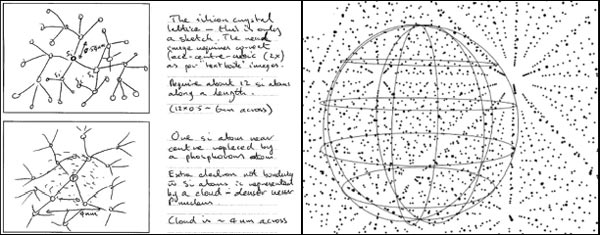 The silicon crystal
lattice – this is only
a sketch. The real
image requires
face-centre-cubic (2x)
as per 'text book' images.
Require about 12 si atoms
along a length.
(12 x 0.5 ~ 6nm across)
One si atom near
centre replaced by
a phosphorous atom
Extra electron not bonding
to si atoms is represented
by a cloud – denser near
P nucleus
Cloud is ~ 4nm across
Si
0.5nm
Si
4nm